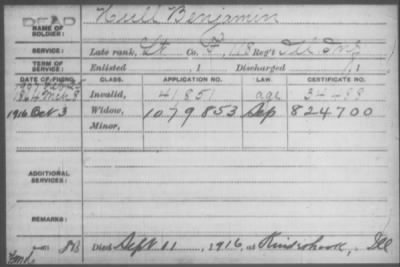 DEAD
NAME OF SOLDIER: Hull Benjamin
SERVICE: Late rank, Lt Co. F, 118 Reg't Ill Inf
TERM OF SERVICE: Enlisted , 1 Discharged , 1
DATE OF FILING. CLASS. APPLICATION NO. LAW. CERTIFICATE NO.
Invalid, 41851 age
1916 Oct 3 Widow, 1079.853 Sep 824700
Minor,
ADDITIONAL SERVICES:
REMARKS:
Died Sept 11 , 1916, at Kinderhook, Ill